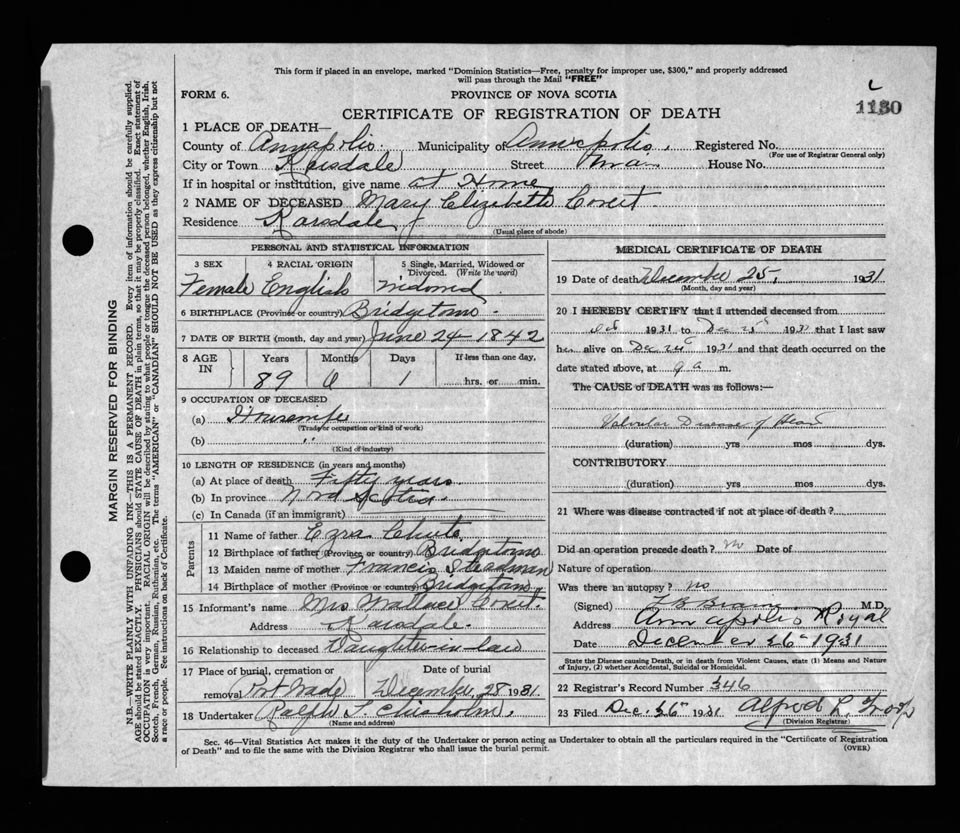 This form if placed in an envelope, marked "Dominion Statistics—Free, penalty for improper use, $300," and properly addressed
will pass through the Mail "FREE"
FORM 6.
PROVINCE OF NOVA SCOTIA
L
1130
CERTIFICATE OF REGISTRATION OF DEATH
1 PLACE OF DEATH—
County of Annapolis. Municipality of Annapolis, Registered No.
(For use of Registrar General only)
City or Town Karsdale Street House No.
If in hospital or institution, give name at Home
2 NAME OF DECEASED Mary Elizabeth Covert.
Residence Karsdale
(Usual place of abode)
PERSONAL AND STATISTICAL INFORMATION
3 SEX 4 RACIAL ORIGIN 5 Single, Married, Widowed or
Divorced. (Write the word)
Female English Widowed
6 BIRTHPLACE (Province or country) Bridgetown.
7 DATE OF BIRTH (month, day and year) June 24-1842
8 AGE IN Years Months Days If less than one day,
89 6 1 hrs. or min.
9 OCCUPATION OF DECEASED
(a) Housewife
(Trade or occupation or kind of work)
(b) "
(Kind of industry)
10 LENGTH OF RESIDENCE (in years and months)
(a) At place of death Fifty years.
(b) In province Nova Scotia.
(c) In Canada (if an immigrant)
Parents
11 Name of father Ezra Chute.
12 Birthplace of father (Province or country) Bridgetown
13 Maiden name of mother Francis Steadman
14 Birthplace of mother (Province or country) Bridgetown
15 Informant's name Mrs Wallace Covert.
Address Karsdale.
16 Relationship to deceased Daughter-in-law
17 Place of burial, cremation or Date of burial
removal Port Wade December 28 1931.
18 Undertaker Ralph L. Chisholm.
(Name and address)
MEDICAL CERTIFICATE OF DEATH
19 Date of death December 25, 1931
(Month, day and year)
20 I HEREBY CERTIFY that I attended deceased from
1931 to Dec 25 1931 that I last saw
her alive on Dec 1931 and that death occurred on the
date stated above, at 9 a m.
The CAUSE OF DEATH was as follows:—
Valvular Disease of Heart
(duration) yrs mos dys.
CONTRIBUTORY
(duration) yrs. mos. dys.
21 Where was disease contracted if not at place of death?
Did an operation precede death? No Date of
Nature of operation
Was there an autopsy? No
(Signed) M.D.
Address Annapolis Royal
Date December 26 1931
State the Disease causing Death, or in death from Violent Causes, state (1) Means and Nature
of Injury, (2) whether Accidental, Suicidal or Homicidal.
22 Registrar's Record Number 346
23 Filed Dec. 26 1931 Alfred
(Division Registrar)
Sec. 46—Vital Statistics Act makes it the duty of the Undertaker or person acting as Undertaker to obtain all the particulars required in the "Certificate of Registration
of Death" and to file the same with the Division Registrar who shall issue the burial permit.
(OVER)
MARGIN RESERVED FOR BINDING
N.B.—WRITE PLAINLY WITH UNFADING INK—THIS IS A PERMANENT RECORD. Every item of information should be carefully supplied.
AGE should be stated EXACTLY. PHYSICIANS should STATE CAUSE OF DEATH in plain terms, so that it may be properly classified. Exact statement of
OCCUPATION is very important. RACIAL ORIGIN will be described by stating to what people or tongue the deceased person belonged, whether English, Irish,
Scotch, French, German, Russian, Ruthenian, etc. The terms "AMERICAN" or "CANADIAN" SHOULD NOT BE USED as they express citizenship but not
a race or people. See instructions on back of Certificate.